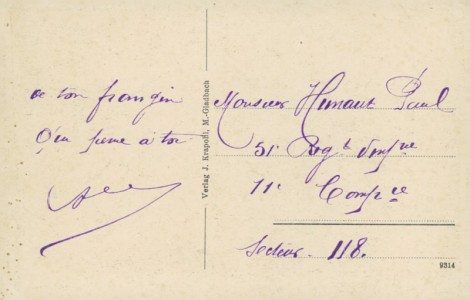 de ton frangin
qui pense à toi
Verlag J. Krapohl, M.-Gladbach
Monsieur Hunaut Paul
51e Regt d'infrie
11e Compie
Secteur 118.
9314